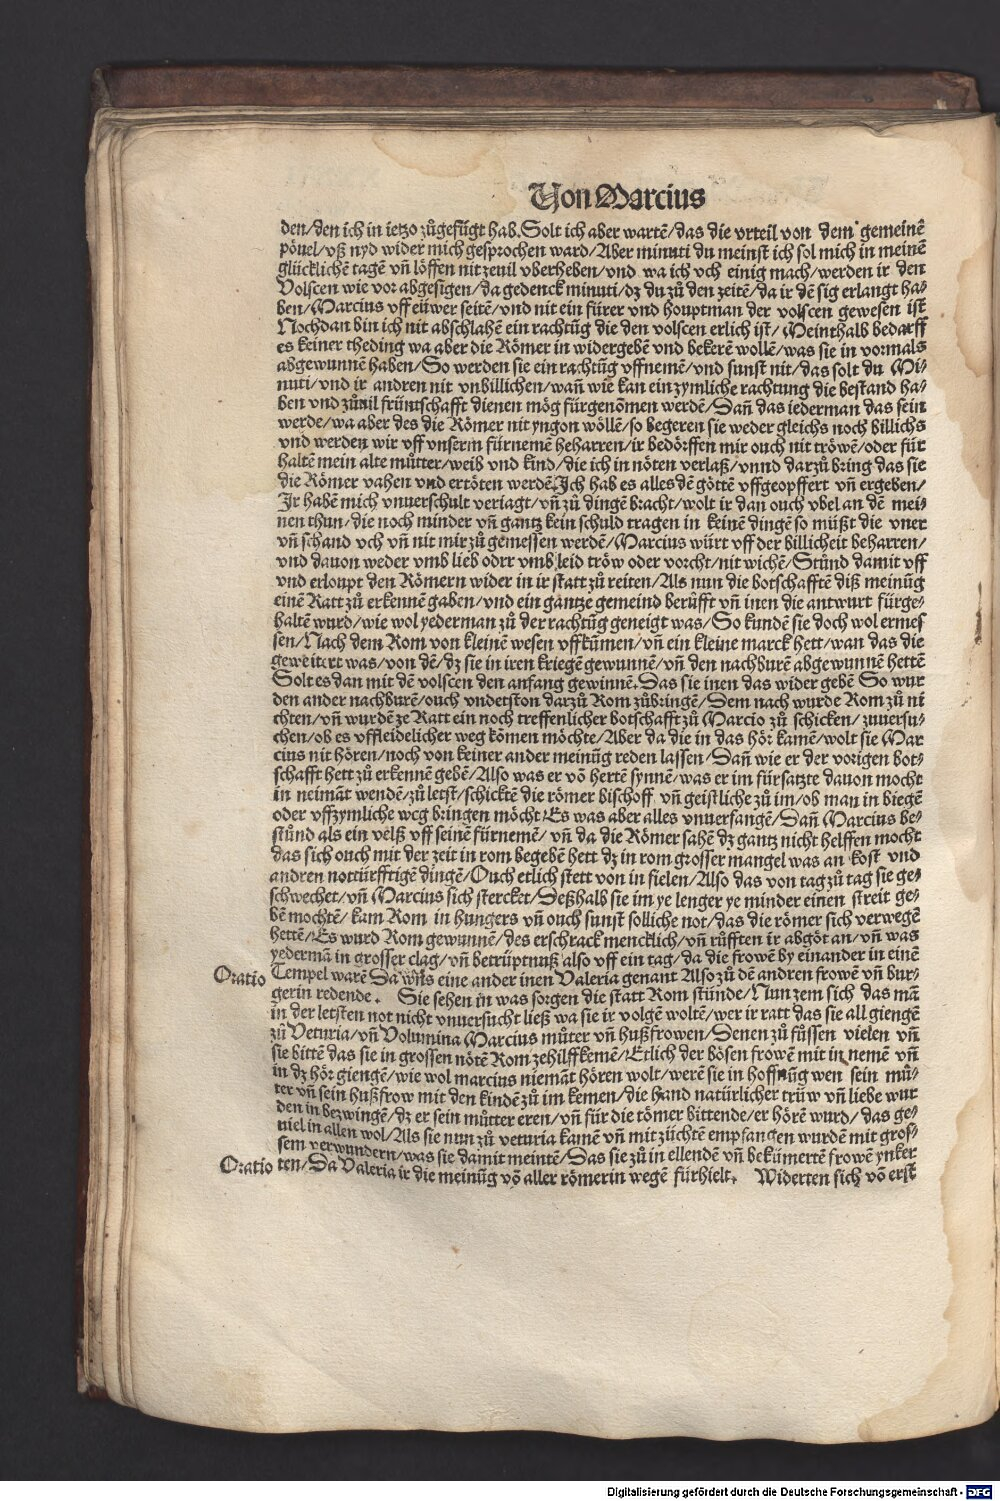 Von Marcius
den/den ich in ietzo zůgefůgt hab. Solt ich aber wartē/das die vrteil von dem gemeinē
pöuel/vß nyd wider mich gesprochen ward/Aber minuti du meinst ich sol mich in meinē
glücklichē tagē vñ löffen nit zeuil vberheben/vnd wa ich vch einig mach/werden ir den
Volscen wie vor abgesigen/da gedenck minuti/dz du zů den zeitē/da ir dē sig erlangt ha⸗
ben/Marcius vff eüwer seitē/vnd nit ein fürer vnd houptman der volscen gewesen ist
Nochdan bin ich nit abschlahē ein rachtūg die den volscen erlich ist/Meinthalb bedarff
es keiner theding wa aber die Römer in widergebē vnd bekerē wollē/was sie in vormals
abgewunnē haben/So werden sie ein rachtūg vffnemē/vnd sunst nit/das solt du Mi⸗
nuti/vnd ir andren nit vnbillichen/wañ wie kan ein zymliche rachtung die bestand ha⸗
ben vnd zůuil früntschafft dienen mög fürgenōmen werdē/Dañ das iederman das sein
werde/wa aber des die Römer nit yngon wöllē/so begeren sie weder gleichs noch billichs
vnd werden wir vff vnserm fürnemē beharren/ir bedörffen mir ouch nit tröwē/oder für
haltē mein alte můtter/weib vnd kind/die ich in nöten verlaß/vnnd darzů bring das sie
die Römer vahen vnd ertöten werdē. Ich hab es alles dē göttē vffgeopffert vñ ergeben/
Ir habē mich vnuerschult veriagt/vñ zů dingē bracht/wolt ir dan ouch vbel an dē mei⸗
nen thun/die noch minder vñ gantz kein schuld tragen in keinē dingē so müßt die vner
vñ schand vch vñ nit mir zů gemessen werdē/Marcius würt vff der billicheit beharren/
vnd dauon weder vmb lieb odrr vmb leid tröw oder vorcht/nit wichē/Stůnd damit vff
vnd erloupt den Römern wider in ir statt zů reiten/Als nun die botschafftē diß meinūg
einē Ratt zů erkennē gaben/vnd ein gantze gemeind berůfft vñ inen die antwurt fürge⸗
haltē wurd/wie wol yederman zů der rachtūg geneigt was/So kundē sie doch wol ermes
sen/Nach dem Rom von kleinē wesen vffkūmen/vñ ein kleine marck hett/wan das die
geweitert was/von dē/dz sie in iren kriegē gewunnē/vñ den nachburē abgewunnē hettē
Solt es dan mit dē volscen den anfang gewinnē. Das sie inen das wider gebē So wur
den ander nachburē/ouch vndetston darzů Rom zůbringē/Dem nach wurde Rom zů ni
chten/vñ wurdē ze Ratt ein noch treffenlicher botschafft zů Marcio zů schicken/zuuersu⸗
chen/ob es vffleidelicher weg kōmen möchte/Aber da die in das hör kamē/wolt sie Mar
cius nit hören/noch von keiner ander meinūg reden lassen/Dañ wie er der vorigen bot⸗
schafft hett zů erkennē gebē/Also was er vō hertē synnē/was er im fürsatzte dauon mocht
in neimāt wendē/zů letst/schicktē die römer bischoff vñ geistliche zů im/ob man in biegē
oder vffzymliche wcg bringen möcht/Es was aber alles vnuerfangē/Dañ Marcius be⸗
stůnd als ein velß vff seinē fürnemē/vñ da die Römer sahē dz gantz nicht helffen mocht
das sich ouch mit der zeit in rom begebē hett dz in rom grosser mangel was an kost vnd
andren notturfftigē dingē/Ouch etlich stett von in fielen/Also das von tag zů tag sie ge⸗
schwechet/vñ Marcius sich stercket/Deßhalb sie im ye lenger ye minder einen streit ge⸗
bē mochtē/kam Rom in hungers vñ ouch sunst solliche not/das die römer sich verwegē
hettē/Es wurd Rom gewunnē/des erschrack mencklich/vñ růfften ir abgöt an/vñ was
yedermā in grosser clag/vñ betrüptnuß also vff ein tag/da die frowē by einander in einē
Oratio Tempel warē Da eine ander inen Valeria genant Also zů dē andren frowē vñ bur⸗
gerin redende. Sie sehen in was sorgen die statt Rom stünde/Nun zem sich das mā
in der letsten not nicht vnuersucht ließ wa sie ir volgē woltē/wer ir ratt das sie all giengē
zů Veturia/vñ Volumina Marcius můter vñ hußfrowen/Denen zů fůssen vielen vñ
sie bittē das sie in grossen nötē Rom zehilff kemē/Etlich der bösen frowē mit in nemē vñ
in dz hör giengē/wie wol marcius niemāt hören wolt/werē sie in hoffnūg wen sein mů⸗
ter vñ sein hußfrow mit den kindē zů im kemen/die hand natürlicher trüw vñ liebe wur
den in bezwingē/dz er sein můtter eren/vñ für die tömer bittende/er hörē wurd/das ge⸗
uiel in allen wol/Als sie nun zů veturia kamē vñ mit züchtē empfangen wurdē mit gros⸗
sem verwundern/was sie damit meintē/Das sie zů in ellendē vñ bekümertē frowē ynker
Oratio ten/Da Valeria ir die meinūg vō aller römerin wegē fürhielt. Widerten sich vō erst
Digitalisierung gefördert durch die Deutsche Forschungsgemeinschaft - DFG